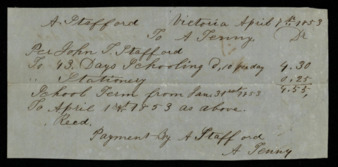 A Stafford Victoria April 1st 1853
To A Penny Dr
Per John T. Stafford
To 93 Days Schooling 9.30
Stationery 0.25
School Term from Jan 9.55
To April 1st 1853 as above.
Recd.
Payment by A Stafford
A Penny